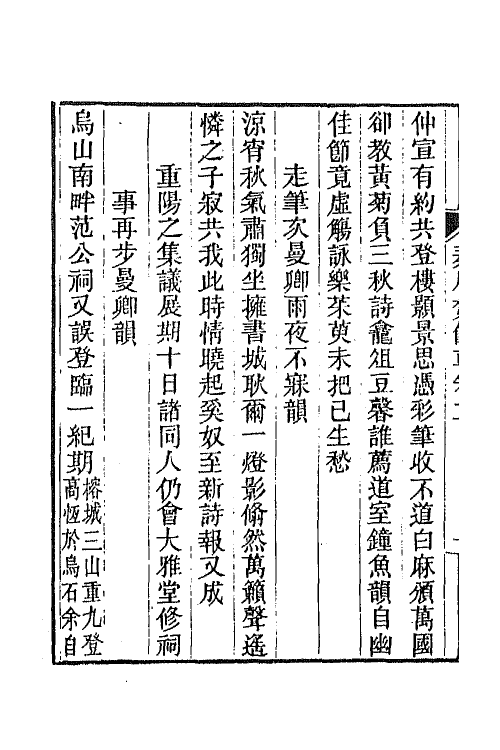 仲宣有約共登樓顥景思憑彩筆收不道白麻頒萬國
卻教黃菊負三秋詩龕俎豆馨誰薦道室鐘魚韻自幽
佳節竟虛觴詠樂茱萸未把已生愁
走筆次曼卿雨夜不寐韻
涼宵秋氣肅獨坐擁書城耿爾一燈影翛然萬籟聲遙
憐之子寂共我此時情曉起奚奴至新詩報又成
重陽之集議展期十日諸同人仍會大雅堂修祠
事再步曼卿韻
烏山南畔范公祠又誤登臨一紀期榕城三山重九登
高恆於烏石余自